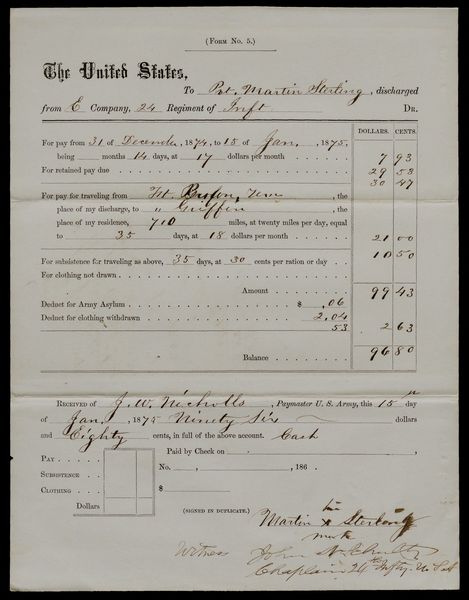 (FORM NO. 5.)
The United States,
To Pvt. Martin Sterling, discharged
from E Company, 24 Regiment of Inft DR.
DOLLARS. CENTS.
For pay from 31 of December, 1874, to 15 of Jan, 1875,
being months 14 days, at 17 dollars per month 7 93
For retained pay due 29 53
30 47
For pay for traveling from Ft. , the
place of my discharge, to " Griffin , the
place of my residence, 710 miles, at twenty miles per day, equal
to 35 days, at 18 dollars per month 21 00
For subsistence for traveling as above, 35 days, at 30 cents per ration or day 10 50
For clothing not drawn
Amount 99 43
Deduct for Army Asylum $ .06
Deduct for clothing withdrawn 2.04
53 2 63
Balance 96 80
RECEIVED of J. W. Nicholls, Paymaster U. S. Army, this 15 day
of Jan, 1875 Ninety Six dollars
and Eighty cents, in full of the above account. Cash
PAY Paid by Check on ,
SUBSISTENCE No. , , 186 .
CLOTHING $
Dollars
(SIGNED IN DUPLICATE.)
his
Martin x Sterling
mark
Witness John N. Schultz
Chaplain 24th Infty. U.S.A